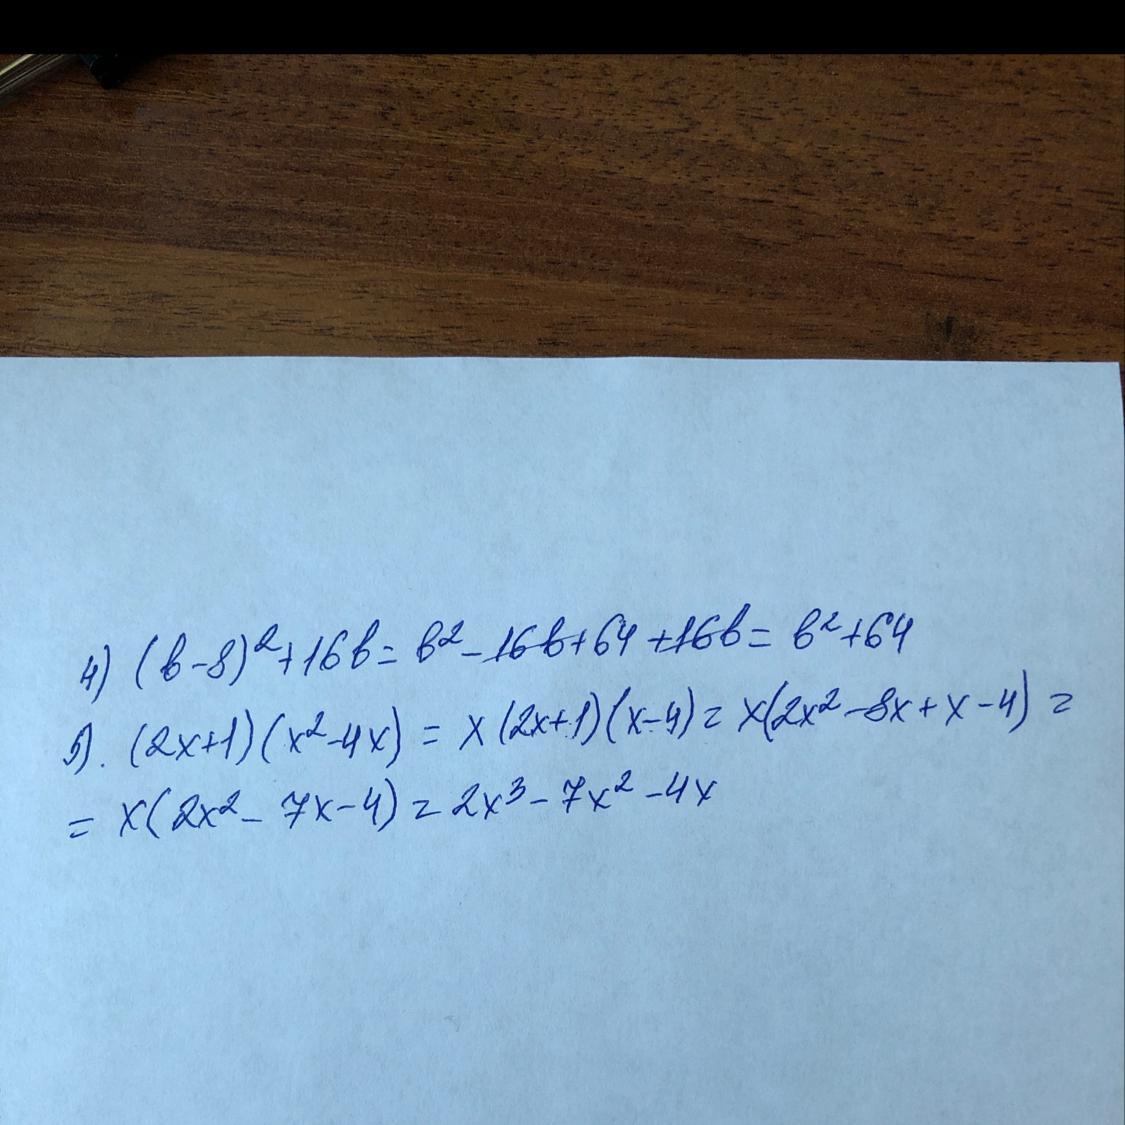 4) (b-8)²+16b = b²-16b+64+16b = b²+64
5). (2x+1)(x²-4x) = x(2x+1)(x-4) = x(2x²-8x+x-4) =
= x(2x²-7x-4) = 2x³-7x²-4x